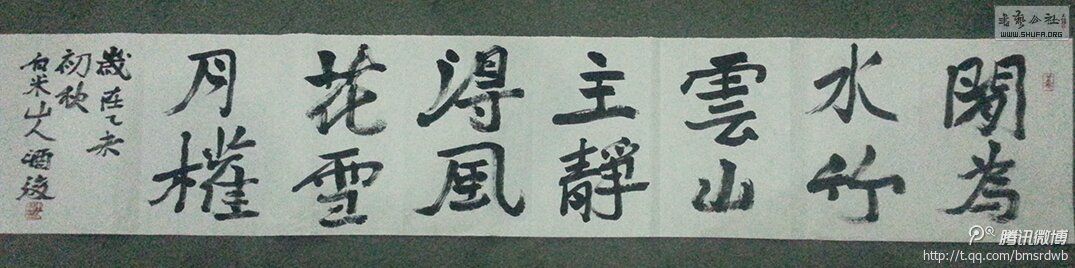 閑為
水竹
雲山
主靜
得風
花雪
月權
歲在乙未
初秋
白米山人酒後
书艺公社
WWW.SHUFA.ORG
腾讯微博
http://t.qq.com/bmsrdwb